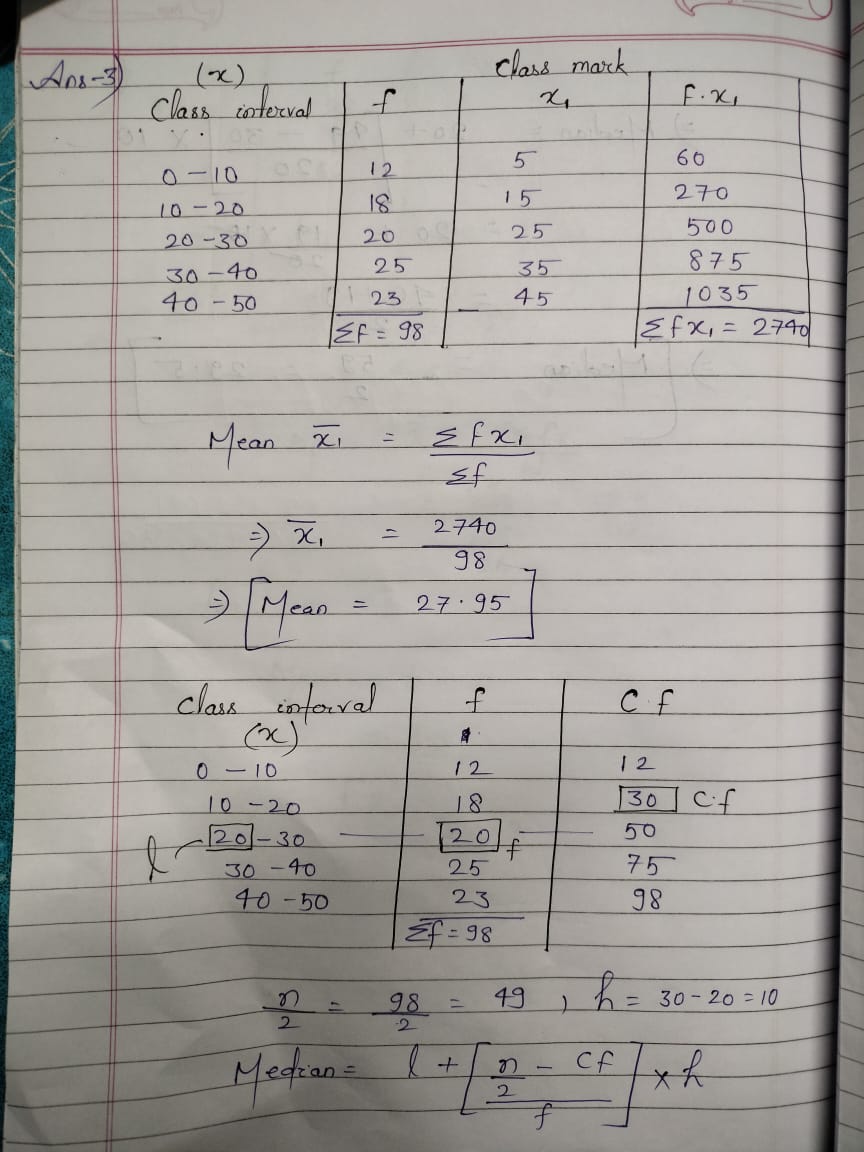 Ans-3) (x) Class mark
Class interval f x₁ F.x₁
0-10 12 5 60
10-20 18 15 270
20-30 20 25 500
30-40 25 35 875
40-50 23 45 1035
Σf = 98 Σfx₁ = 2740
Mean x̄₁ = Σfx₁ / Σf
⇒ x̄₁ = 2740 / 98
⇒ [Mean = 27.95]
Class interval f C.f
(x)
0-10 12 12
10-20 18 30 C.f
l 20-30 20 f 50
30-40 25 75
40-50 23 98
Σf = 98
n/2 = 98/2 = 49, h = 30-20 = 10
Median = l + [(n/2 - Cf) / f] × h